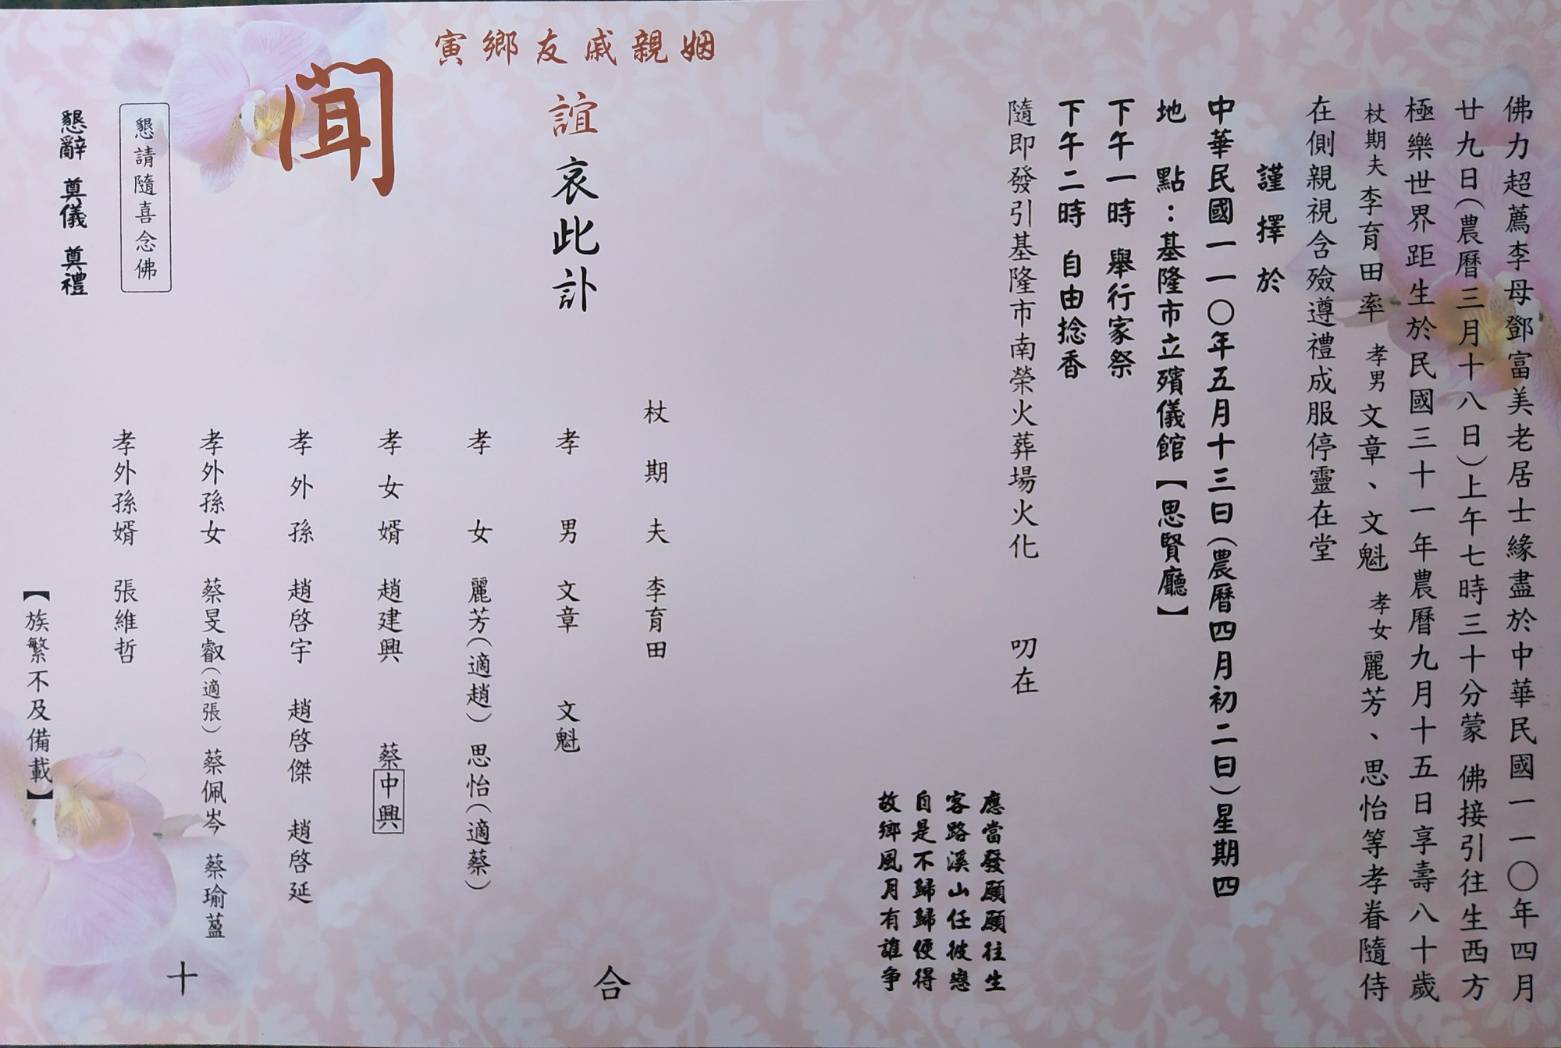 佛力超薦李母鄧富美老居士緣盡於中華民國一一〇年四月
廿九日(農曆三月十八日)上午七時三十分蒙 佛接引往生西方
極樂世界距生於民國三十一年農曆九月十五日享壽八十歲
杖期夫李育田率 孝男文章、文魁 孝女麗芳、思怡等孝眷隨侍
在側親視含殮遵禮成服停靈在堂
謹擇於
中華民國一一〇年五月十三日(農曆四月初二日)星期四
地 點：基隆市立殯儀館【思賢廳】
下午一時 舉行家祭
下午二時 自由捻香
隨即發引基隆市南榮火葬場火化 叨在
應當發願願往生
客路溪山任彼戀
自是不歸歸便得
故鄉風月有誰爭
姻親戚友鄉寅
誼哀此訃
聞
杖期夫 李育田
孝男 文章 文魁
孝女 麗芳(適趙) 思怡(適蔡)
孝女婿 趙建興 蔡中興
孝外孫 趙啓宇 趙啓傑 趙啓延
孝外孫女 蔡旻叡(適張) 蔡佩岑 蔡瑜萾
孝外孫婿 張維哲
合
十
【族繁不及備載】
懇請隨喜念佛
懇辭 奠儀 奠禮